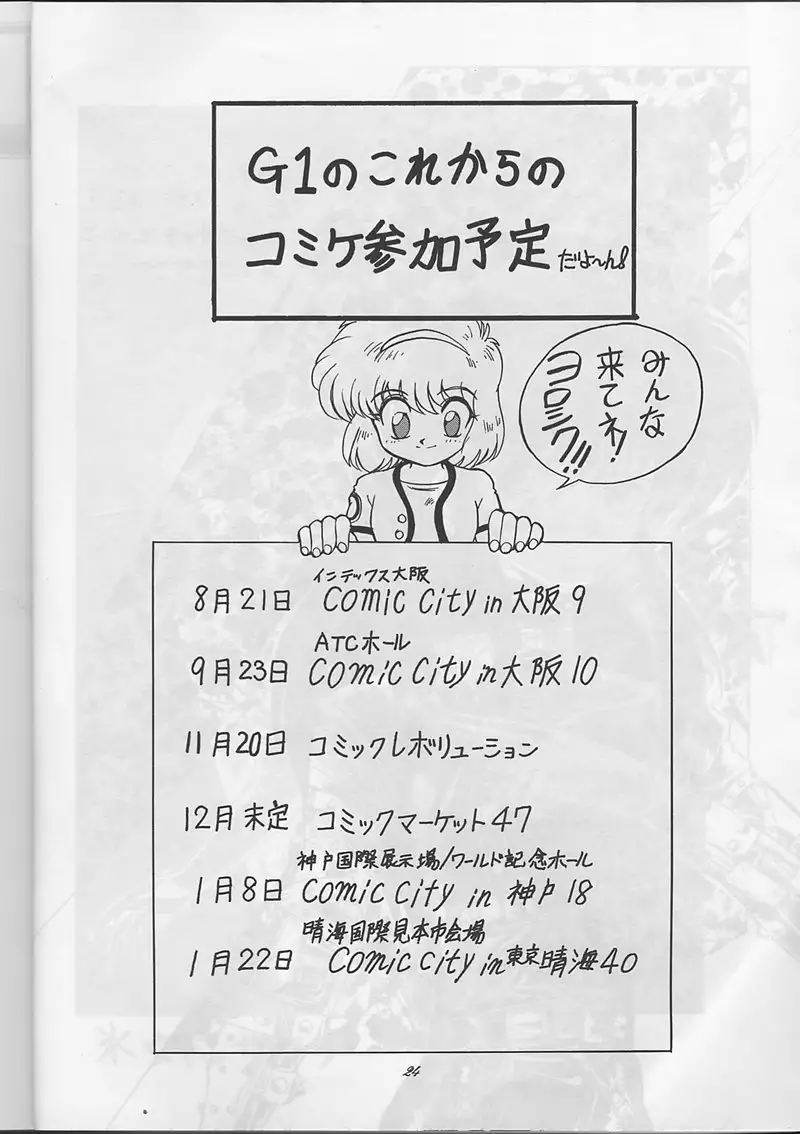 G1のこれからの
コミケ参加予定だよ〜ん!
みんな
来てネ!
ヨロシク!!
インテックス大阪
8月21日 Comic City in 大阪 9
ATCホール
9月23日 Comic City in 大阪 10
11月20日 コミックレボリューション
12月 未定 コミックマーケット47
神戸国際展示場/ワールド記念ホール
1月8日 Comic City in 神戸 18
晴海国際見本市会場
1月22日 Comic City in 東京晴海40
24